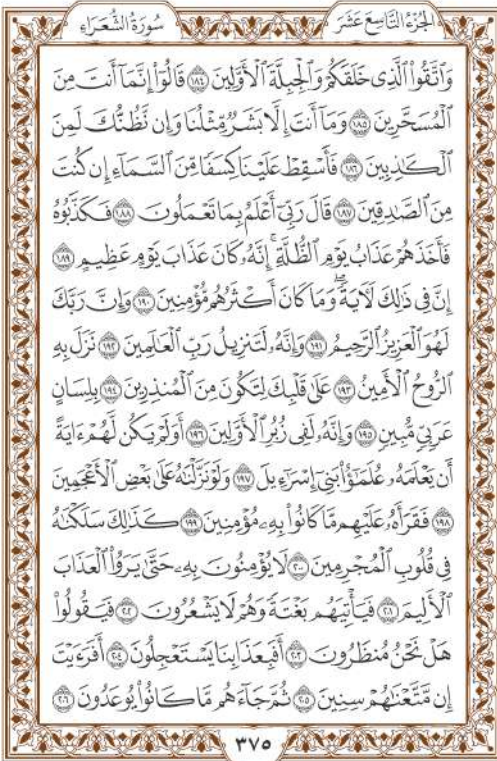 الجزء التاسع عشر
سورة الشعراء
وَٱتَّقُوا۟ ٱلَّذِى خَلَقَكُمْ وَٱلْجِبِلَّةَ ٱلْأَوَّلِينَ ١٨٤ قَالُوٓا۟ إِنَّمَآ أَنتَ مِنَ
ٱلْمُسَحَّرِينَ ١٨٥ وَمَآ أَنتَ إِلَّا بَشَرٌ مِّثْلُنَا وَإِن نَّظُنُّكَ لَمِنَ
ٱلْكَـٰذِبِينَ ١٨٦ فَأَسْقِطْ عَلَيْنَا كِسَفًا مِّنَ ٱلسَّمَآءِ إِن كُنتَ
مِنَ ٱلصَّـٰدِقِينَ ١٨٧ قَالَ رَبِّىٓ أَعْلَمُ بِمَا تَعْمَلُونَ ١٨٨ فَكَذَّبُوهُ
فَأَخَذَهُمْ عَذَابُ يَوْمِ ٱلظُّلَّةِ ۚ إِنَّهُۥ كَانَ عَذَابَ يَوْمٍ عَظِيمٍ ١٨٩
إِنَّ فِى ذَٰلِكَ لَـَٔايَةً ۖ وَمَا كَانَ أَكْثَرُهُم مُّؤْمِنِينَ ١٩٠ وَإِنَّ رَبَّكَ
لَهُوَ ٱلْعَزِيزُ ٱلرَّحِيمُ ١٩١ وَإِنَّهُۥ لَتَنزِيلُ رَبِّ ٱلْعَـٰلَمِينَ ١٩٢ نَزَلَ بِهِ
ٱلرُّوحُ ٱلْأَمِينُ ١٩٣ عَلَىٰ قَلْبِكَ لِتَكُونَ مِنَ ٱلْمُنذِرِينَ ١٩٤ بِلِسَانٍ
عَرَبِىٍّ مُّبِينٍ ١٩٥ وَإِنَّهُۥ لَفِى زُبُرِ ٱلْأَوَّلِينَ ١٩٦ أَوَلَمْ يَكُن لَّهُمْ ءَايَةً
أَن يَعْلَمَهُۥ عُلَمَـٰٓؤُا۟ بَنِىٓ إِسْرَٰٓءِيلَ ١٩٧ وَلَوْ نَزَّلْنَـٰهُ عَلَىٰ بَعْضِ ٱلْأَعْجَمِينَ
١٩٨ فَقَرَأَهُۥ عَلَيْهِم مَّا كَانُوا۟ بِهِۦ مُؤْمِنِينَ ١٩٩ كَذَٰلِكَ سَلَكْنَـٰهُ
فِى قُلُوبِ ٱلْمُجْرِمِينَ ٢٠٠ لَا يُؤْمِنُونَ بِهِۦ حَتَّىٰ يَرَوُا۟ ٱلْعَذَابَ
ٱلْأَلِيمَ ٢٠١ فَيَأْتِيَهُم بَغْتَةً وَهُمْ لَا يَشْعُرُونَ ٢٠٢ فَيَقُولُوا۟
هَلْ نَحْنُ مُنظَرُونَ ٢٠٣ أَفَبِعَذَابِنَا يَسْتَعْجِلُونَ ٢٠٤ أَفَرَءَيْتَ
إِن مَّتَّعْنَـٰهُمْ سِنِينَ ٢٠٥ ثُمَّ جَآءَهُم مَّا كَانُوا۟ يُوعَدُونَ ٢٠٦
٣٧٥